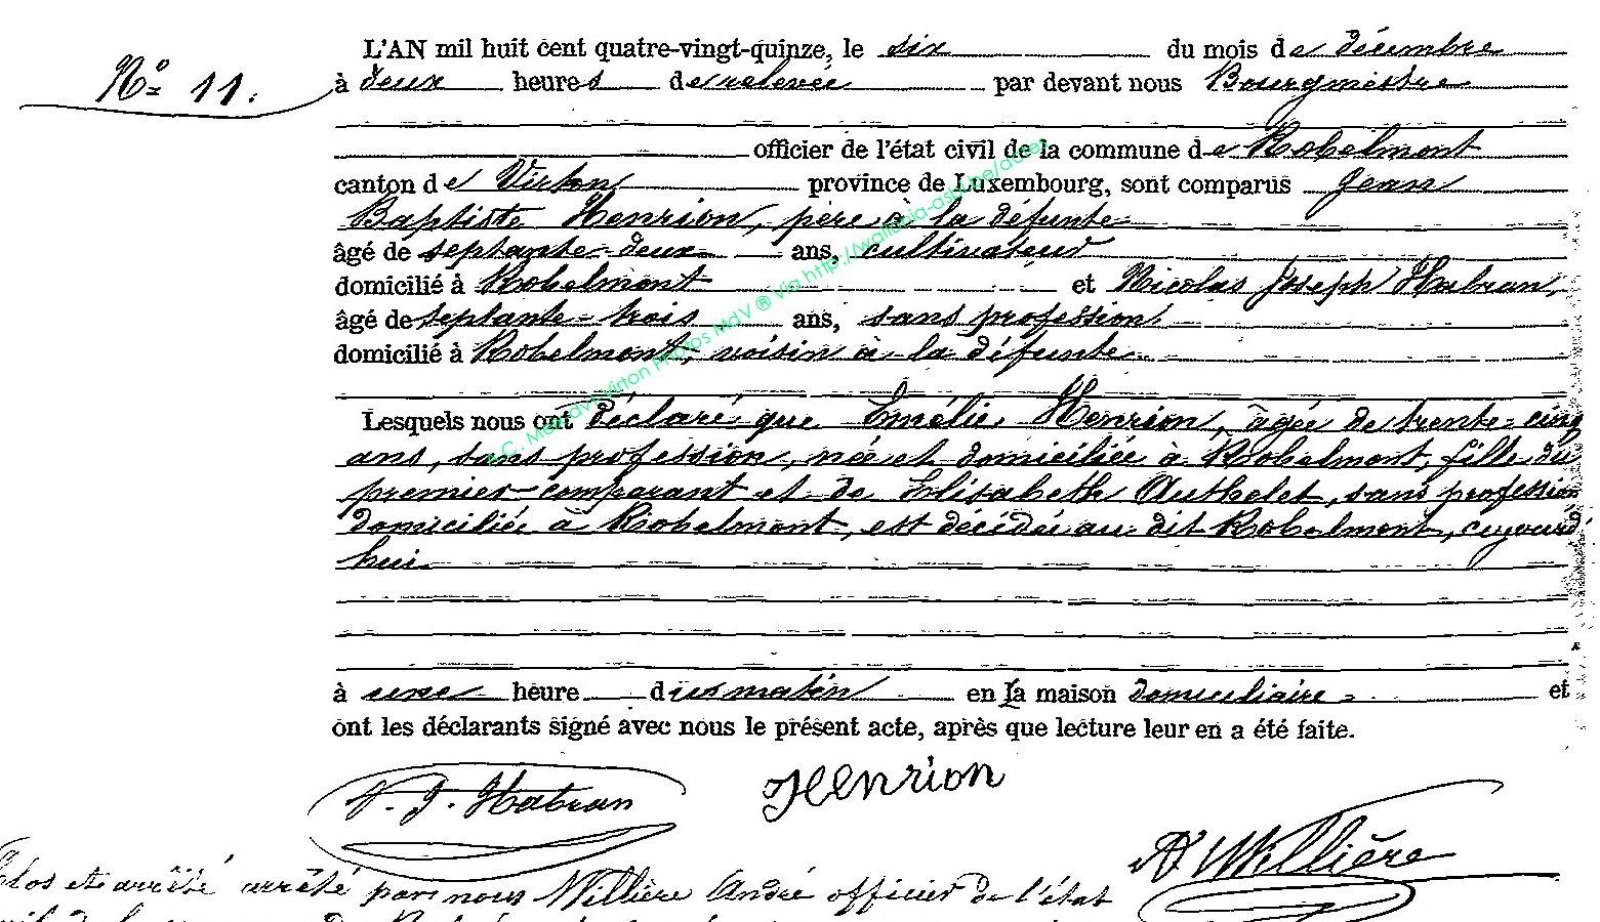 Nº 11.
L'AN mil huit cent quatre-vingt-quinze, le six du mois de décembre
à deux heures de relevée par devant nous Bourgmestre
officier de l'état civil de la commune de Robelmont
canton de Virton province de Luxembourg, sont comparus Jean
Baptiste Henrion, père à la défunte
âgé de septante-deux ans, cultivateur
domicilié à Robelmont et Nicolas Joseph Habran,
âgé de septante-trois ans, sans profession
domicilié à Robelmont, voisin à la défunte
Lesquels nous ont déclaré que Emélie Henrion, agée de trente-cinq
ans, sans profession, née et domiciliée à Robelmont, fille du
premier comparant et de Elisabeth Authelet, sans profession
domiciliée à Robelmont, est décédée au dit Robelmont, aujourd'
hui
à une heure du matin en la maison domiciliaire et
ont les déclarants signé avec nous le présent acte, après que lecture leur en a été faite.
N. J. Habran Henrion
A Willière
Clos et arrêté arrêté par nous Willière André officier de l'état
Photos MdV ® Via http://wallonia-asbl.be/actes